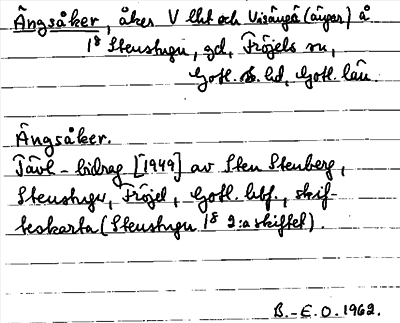 Ängsåker, åker V lht och Visängå (ängar) å
1⁸ Stenstugu, gd, Fröjels sn,
Gotl. S. hd, Gotl. län.
Ängsåker.
Tävl-bidrag [1949] av Sten Stenberg,
Stenstugu, Fröjel, Gotl. hbf., skif-
teskarta (Stenstugu 1⁸ 2:a skiftet).
B.-E.O. 1962.